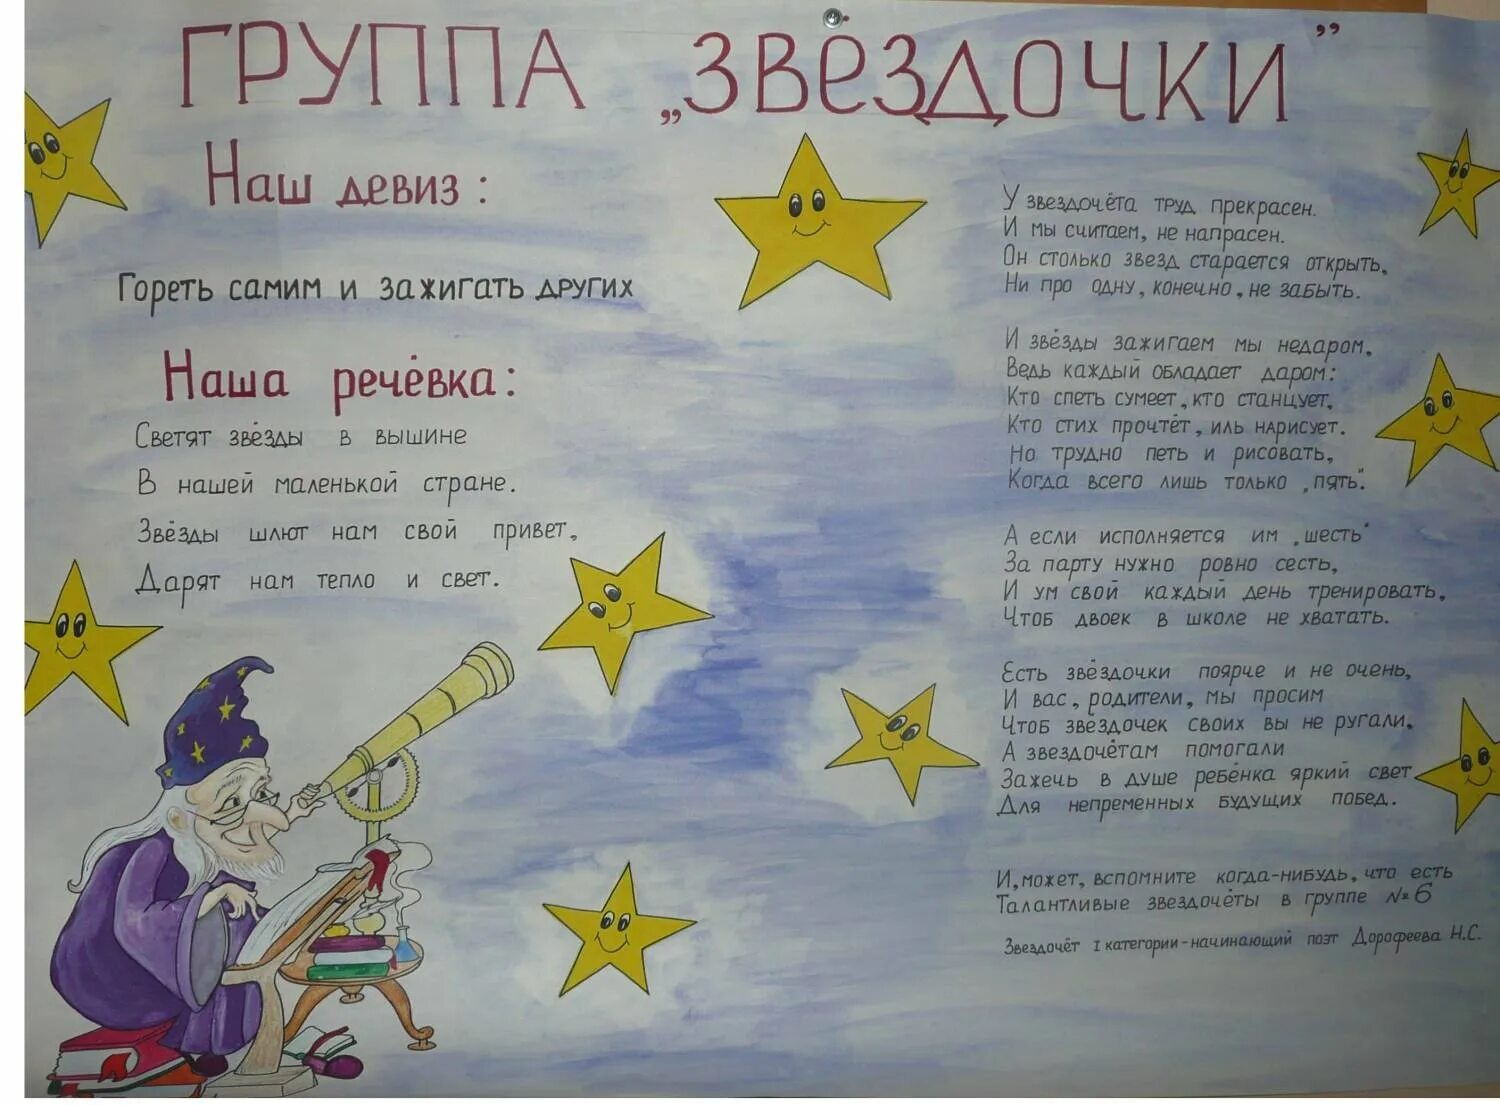 ГРУППА „ЗВЁЗДОЧКИ”
Наш девиз:
Гореть самим и зажигать других
Наша речёвка:
Светят звёзды в вышине
В нашей маленькой стране.
Звёзды шлют нам свой привет,
Дарят нам тепло и свет.
У звездочёта труд прекрасен.
И мы считаем, не напрасен.
Он столько звезд старается открыть,
Ни про одну, конечно, не забыть.
И звёзды зажигаем мы недаром,
Ведь каждый обладает даром:
Кто спеть сумеет, кто станцует,
Кто стих прочтёт, иль нарисует.
Но трудно петь и рисовать,
Когда всего лишь только „пять".
А если исполняется им „шесть"
За парту нужно ровно сесть,
И ум свой каждый день тренировать,
Чтоб двоек в школе не хватать.
Есть звёздочки поярче и не очень,
И вас, родители, мы просим
Чтоб звёздочек своих вы не ругали,
А звездочётам помогали
Зажечь в душе ребёнка яркий свет
Для непременных будущих побед.
И, может, вспомните когда-нибудь, что есть
Талантливые звездочёты в группе №6
Звездочёт I категории - начинающий поэт Дорофеева Н.С.